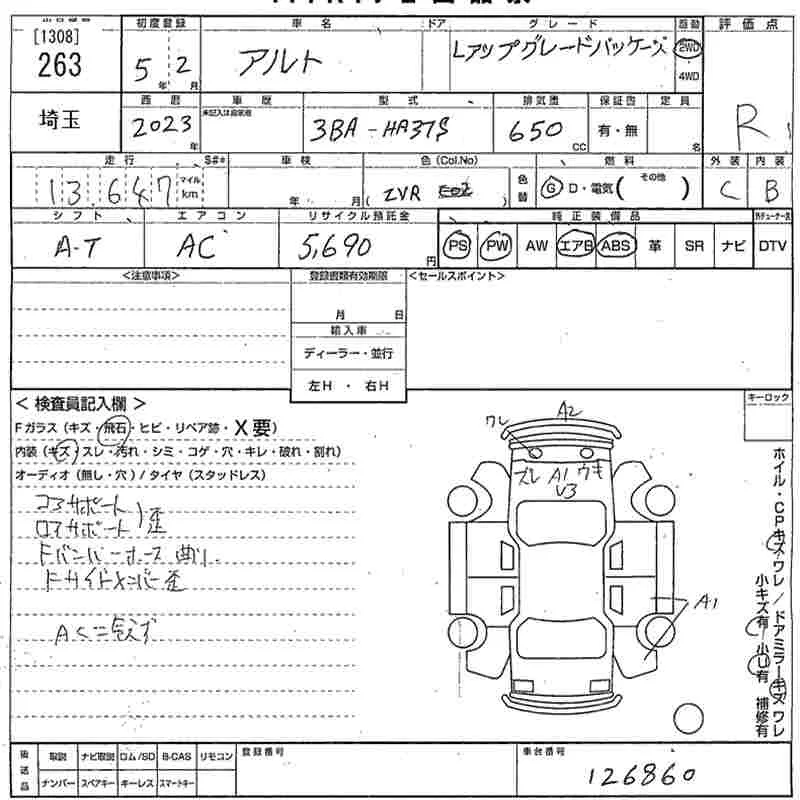 [1308]
263
初度登録
5年 2月
車名
アルト
ドア
グレード
Lアップグレードパッケージ
駆動
2WD
4WD
評価点
R
埼玉
西暦
2023年
車歴
未記入は自家用
型式
3BA-HA37S
排気量
650 CC
保証書
有・無
定員
名
走行
13,647
マイル
km
S#*
車検
年 月
色(Col.No)
(ZVR )
色替
燃料
G D・電気( その他 )
外装
C
内装
B
シフト
A-T
エアコン
AC
リサイクル預託金
5,690円
純正装備品
PS PW AW エアB ABS 革 SR ナビ DTV
<注意事項>
登録書類有効期限
月 日
輸入車
ディーラー・並行
左H ・ 右H
<セールスポイント>
キーロック
< 検査員記入欄 >
Fガラス(キズ・飛石・ヒビ・リペア跡・X要)
内装(キズ・スレ・汚れ・シミ・コゲ・穴・キレ・破れ・割れ)
オーディオ(無し・穴)/タイヤ(スタッドレス)
コアサポート
ロアサポート 歪
Fバンパーホース 曲り
Fサイドメンバー歪
A2
ワレ
ズレ A1 ウキ
V3
A1
ホイル・CPキズワレ/ドアミラーキズワレ
小キズ有 小U有 補修有
後送品
取説 ナビ取説 ロム/SD B-CAS リモコン
ナンバー スペアキー キーレス スマートキー
登録番号
車台番号
126860